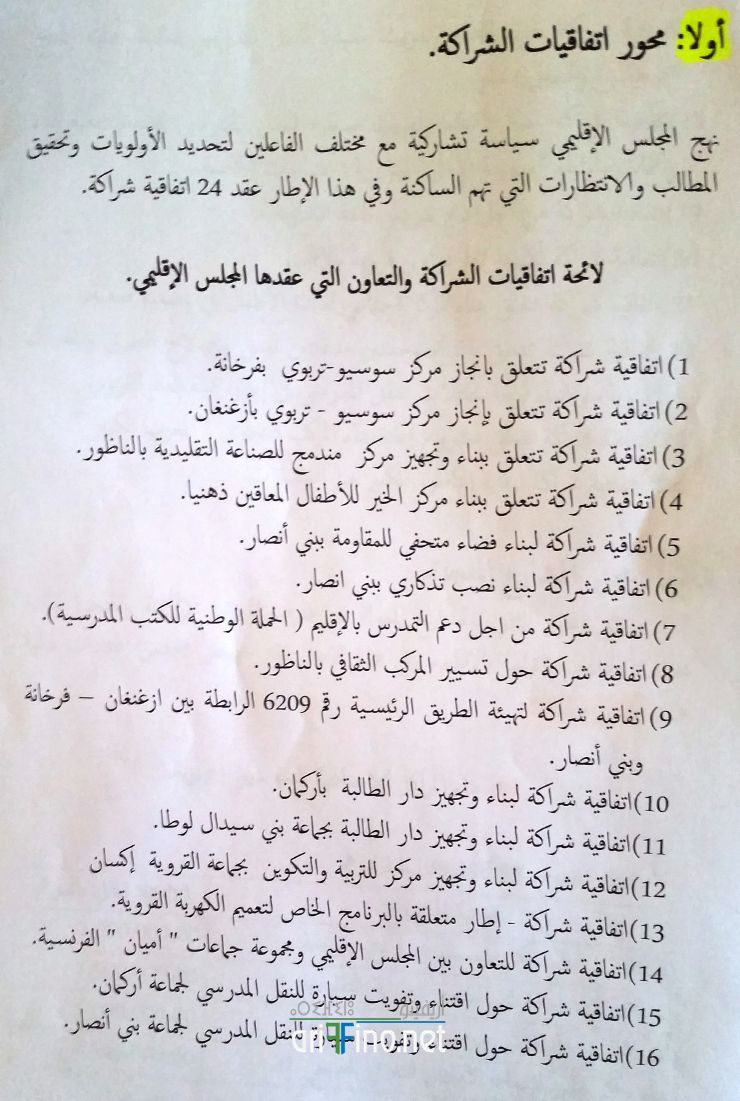 أولا: محور اتفاقيات الشراكة.
نهج المجلس الإقليمي سياسة تشاركية مع مختلف الفاعلين لتحديد الأولويات وتحقيق
المطالب والانتظارات التي تهم الساكنة وفي هذا الإطار عقد 24 اتفاقية شراكة.
لائحة اتفاقيات الشراكة والتعاون التي عقدها المجلس الإقليمي.
1) اتفاقية شراكة تتعلق بانجاز مركز سوسيو-تربوي بفرخانة.
2) اتفاقية شراكة تتعلق بإنجاز مركز سوسيو - تربوي بأزغنغان.
3) اتفاقية شراكة تتعلق ببناء وتجهيز مركز مندمج للصناعة التقليدية بالناظور.
4) اتفاقية شراكة تتعلق ببناء مركز الخير للأطفال المعاقين ذهنيا.
5) اتفاقية شراكة لبناء فضاء متحفي للمقاومة ببني أنصار.
6) اتفاقية شراكة لبناء نصب تذكاري ببني انصار.
7) اتفاقية شراكة من اجل دعم التمدرس بالإقليم ( الحملة الوطنية للكتب المدرسية).
8) اتفاقية شراكة حول تسيير المركب الثقافي بالناظور.
9) اتفاقية شراكة لتهيئة الطريق الرئيسية رقم 6209 الرابطة بين ازغنغان – فرخانة
وبني أنصار.
10) اتفاقية شراكة لبناء وتجهيز دار الطالبة بأركمان.
11) اتفاقية شراكة لبناء وتجهيز دار الطالبة بجماعة بني سيدال لوطا.
12) اتفاقية شراكة لبناء وتجهيز مركز للتربية والتكوين بجماعة القروية إكسان
13) اتفاقية شراكة - إطار متعلقة بالبرنامج الخاص لتعميم الكهربة القروية.
14) اتفاقية شراكة للتعاون بين المجلس الإقليمي ومجموعة جماعات " أميان " الفرنسية.
15) اتفاقية شراكة حول اقتناء وتفويت سيارة للنقل المدرسي لجماعة أركمان.
16) اتفاقية شراكة حول اقتناء وتفويت سيارة للنقل المدرسي لجماعة بني أنصار.
أريفينو
ariffino.net